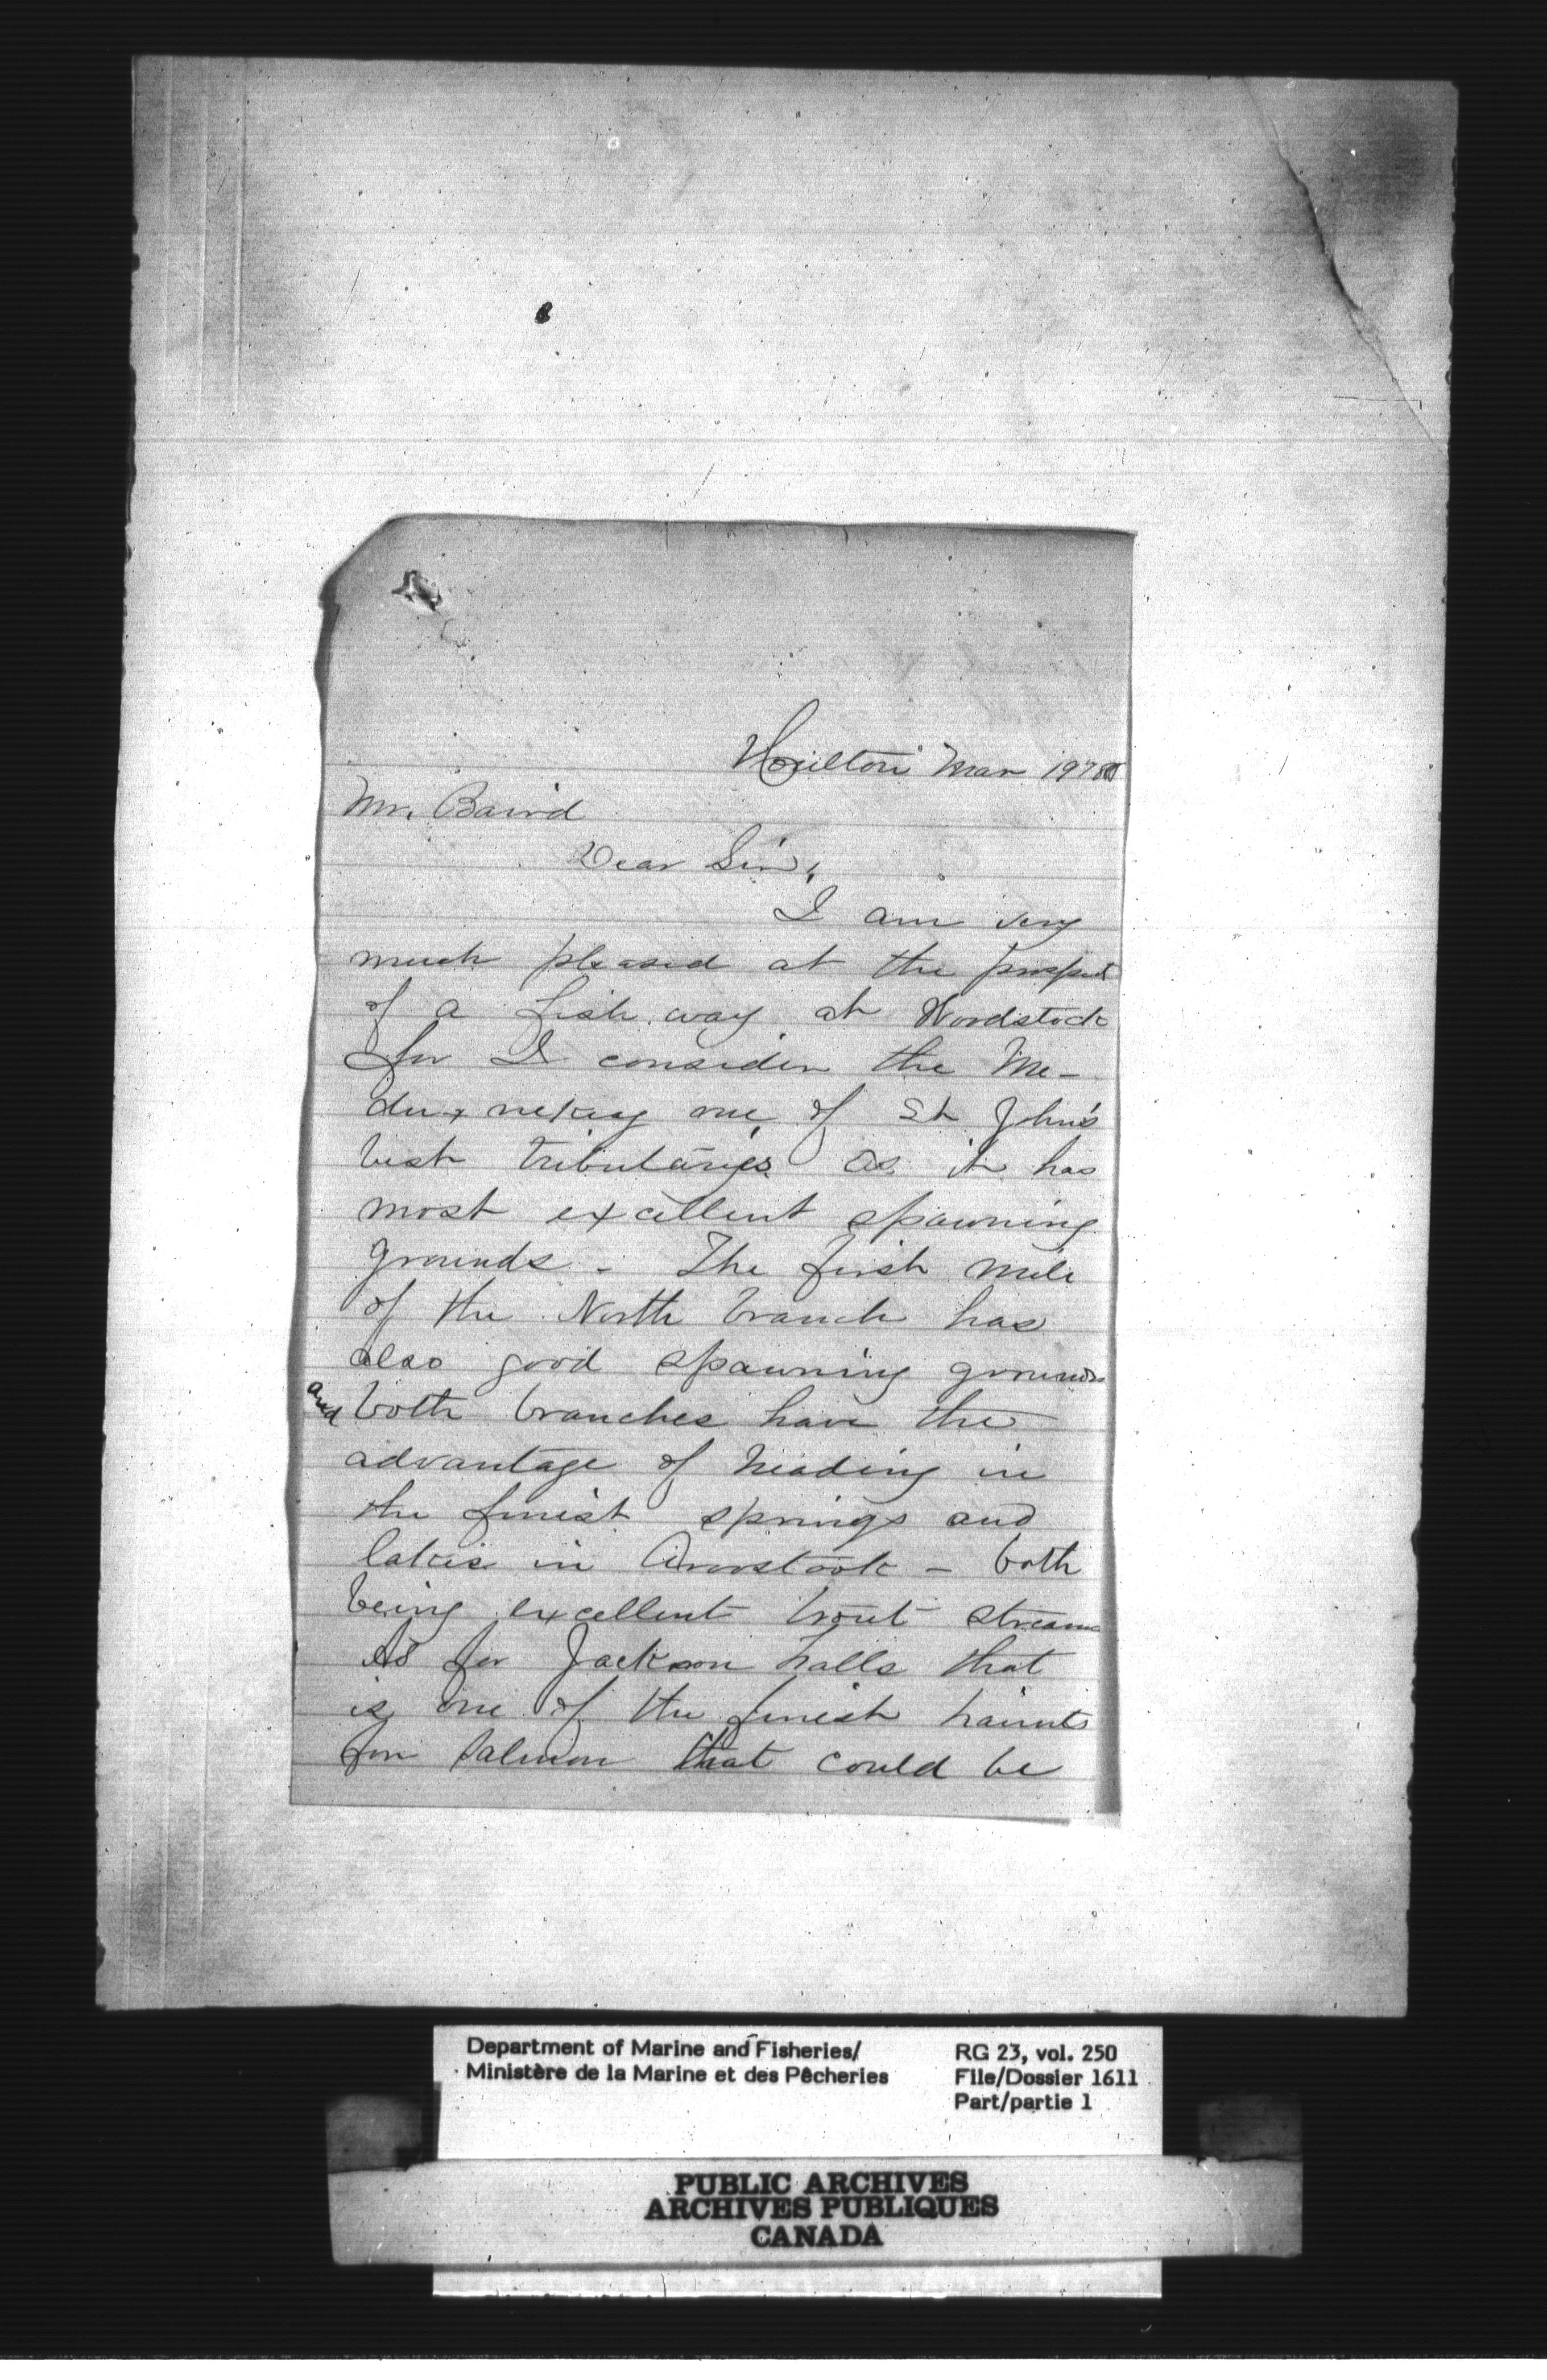 Houlton Mar 19
Mr. Baird
Dear Sir,
I am very
much pleased at the prospect
of a fish way at Woodstock
for I consider the Me-
dux nekeag one of St John's
best tributaries as it has
most excellent spawning
grounds - The first mile
of the North branch has
also good spawning grounds
and both branches have the
advantage of heading in
the finest springs and
lakes in Aroostook - both
being excellent trout streams
As for Jackson Falls that
is one of the finest haunts
for Salmon that could be
Department of Marine and Fisheries/
Ministère de la Marine et des Pêcheries
RG 23, vol. 250
File/Dossier 1611
Part/partie 1
PUBLIC ARCHIVES
ARCHIVES PUBLIQUES
CANADA